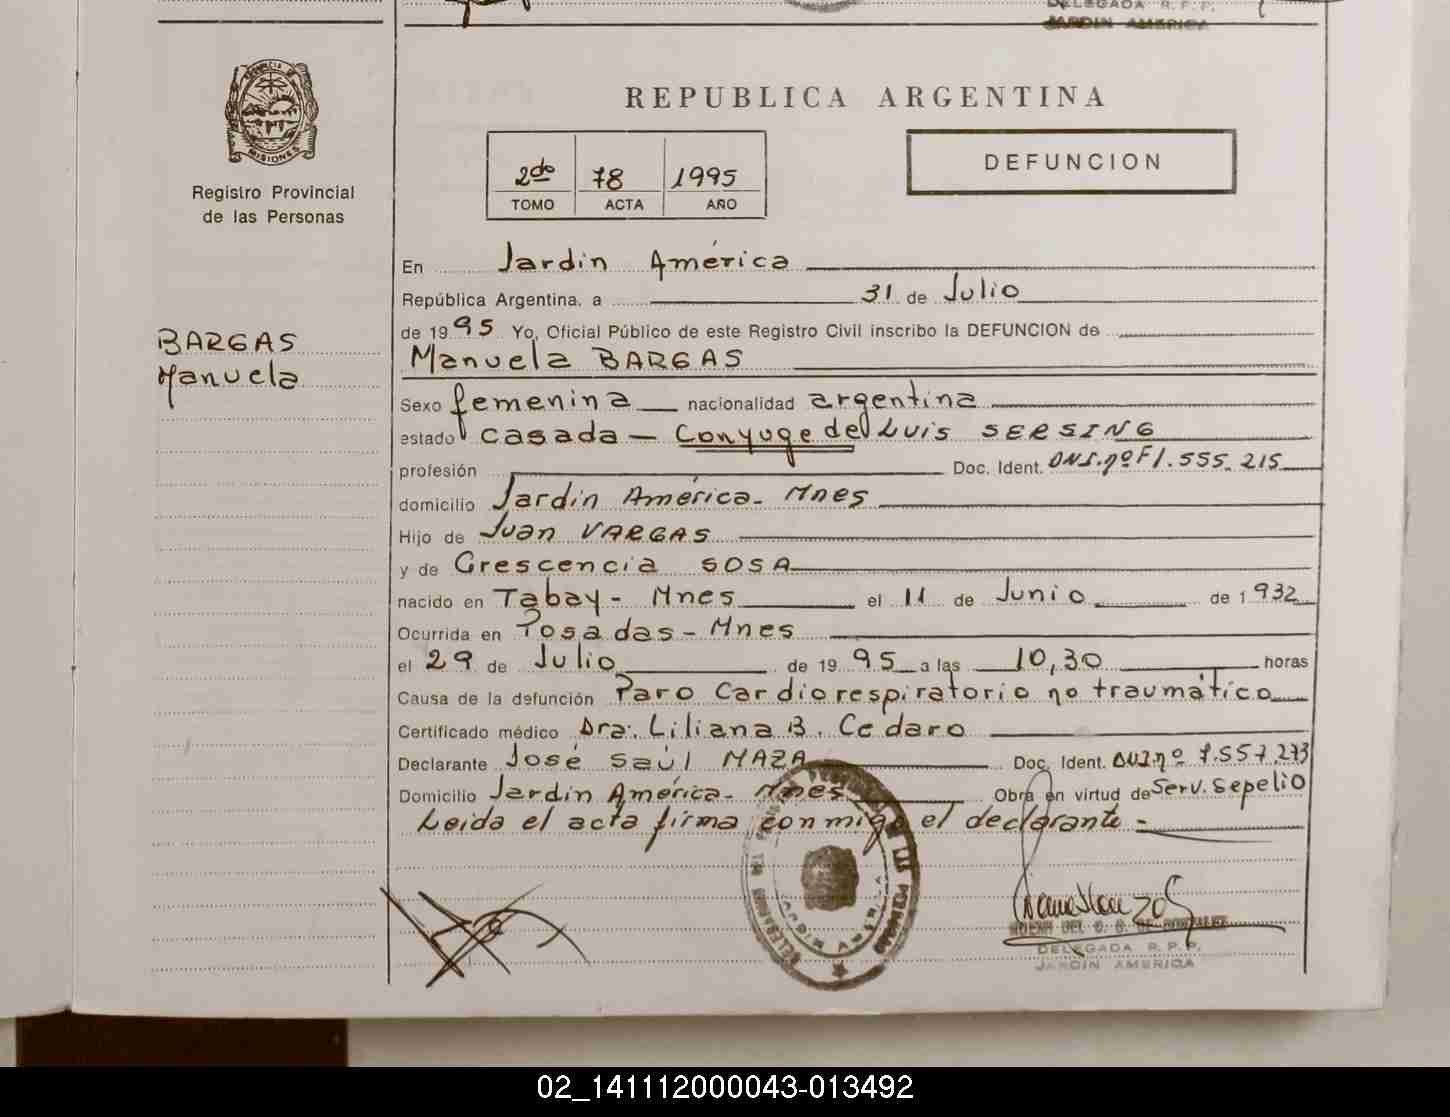 DELEGADA R.P.P.
JARDIN AMERICA
MISIONES
Registro Provincial
de las Personas
BARGAS
Manuela
REPUBLICA ARGENTINA
2do 78 1995
TOMO ACTA AÑO
DEFUNCION
En Jardin América
República Argentina, a 31 de Julio
de 1995 Yo, Oficial Público de este Registro Civil inscribo la DEFUNCION de
Manuela BARGAS
Sexo femenina nacionalidad argentina
estado casada - Conyuge de Luis SERSING
profesión Doc. Ident. DNI.nº F1.555.215
domicilio Jardin América - Mnes
Hijo de Juan VARGAS
y de Crescencia SOSA
nacido en Tabay - Mnes el 11 de Junio de 1932
Ocurrida en Posadas - Mnes
el 29 de Julio de 1995 a las 10,30 horas
Causa de la defunción Paro Cardiorespiratorio no traumático
Certificado médico Dra. Liliana B. Cedaro
Declarante José Saúl MAZA Doc. Ident. DNI.nº 7.557.273
Domicilio Jardin América - Mnes Obra en virtud de Serv. Sepelio
Leida el acta firma conmigo el declarante -
JARDIN AMERICA
DELEGADA R.P.P.
JARDIN AMERICA
02_141112000043-013492